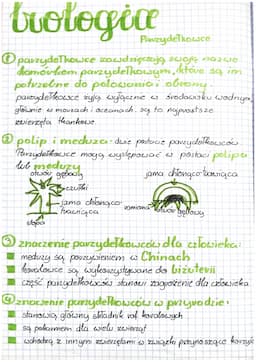 biologia
Parzydełkowce
① parzydełkowce zawdzięczają swoją nazwę
komórkom parzydełkowym, które są im
potrzebne do polowania i obrony.
parzydełkowce żyją wyłącznie w środowisku wodnym,
głównie w morzach i oceanach. są to najprostsze
zwierzęta tkankowe.
② polip i meduza: dwie postacie parzydełkowców.
Parzydełkowce mogą występować w postaci polipa
lub meduzy
otwór gębowy
jama chłonąco-trawiąca
czułki
jama chłonąco-
trawiąca
ramiona
otwór gębowy
stopa
③ znaczenie parzydełkowców dla człowieka:
meduzy są pożywieniem w Chinach
koralowce są wykorzystywane do biżuterii
część parzydełkowców stanowi zagrożenie dla człowieka
④ znaczenie parzydełkowców w przyrodzie:
stanowią główny składnik raf koralowych
są pokarmem dla wielu zwierząt
wchodzą z innymi zwierzętami w związki przynoszące korzyści